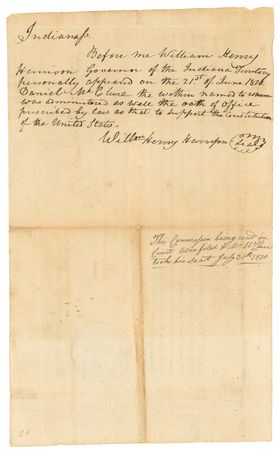 Indiana ss.
Before me William Henry
Harrison Governor of the Indiana Territory
personally appeared on the 21st of June 1810
Daniel McClure the within named to whom
was administered as well the oath of office
prescribed by law as that to support the constitution
of the United States.
Willm Henry Harrison
Seal
This Commission being read in
Court was filed & Mr McClure
took his seat July 1810